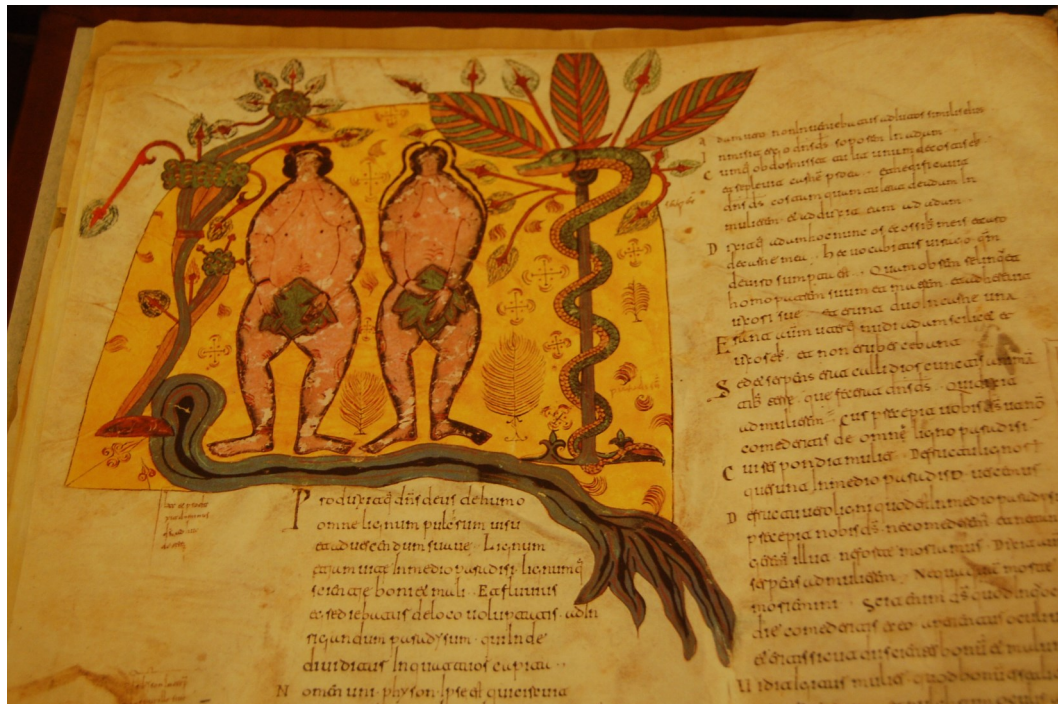 Produxitq; dns deus de humo
omne lignum pulcrum uisu
et ad uescendum suaue. Lignum
etiam uite In medio paradisi lignumq;
scientie boni et mali. Et fluuius
egrediebatur de loco uoluptatis. ad In
rigandum paradysum. qui Inde
diuiditur In quattuor capita..
Nomen uni physon Ipse est qui circuit
adam uero non Inueniebatur adiutor similis eius
Inmisit ergo dns ds soporem In adam
Cumq obdormisset tulit unam de costis eius
et repleuit carnem pro ea. et edificauit
dns ds costam quam tulerat de adam In
mulierem. et adduxit eam ad adam.
Dixitq adam hoc nunc os ex ossibs meis et caro
de carne mea. Hec uocabitur uirago qm
de uiro sumpta est. Quam obrem relinquet
homo patrem suum et matrem. et adherebit
uxori sue. et erunt duo In carne una
Erant autm uterq nudi adam scilicet et
uxor eius. et non erubescebant
Sed et serpens erat callidior cunctis
terre. que fecerat dns ds. Qui dixit
ad mulierem. Cur precepit uobis ds ut non
comederetis de omne ligno paradisi
Cui respondit mulier. De fructu
que sunt In medio paradiso uescemur
De fructu uero ligni quod In medio paradisi
precepit nobis ds. ne comederem et ne
illut. ne forte moriamur. Dixit
serpens ad mulierem. Nequaquam morte
moriemini. Scit enim ds quod
die comederitis ex eo aperientur oculi
et eritis sicut dii scientes bonum et malum
Uidit igitur mulier quod bonum esset